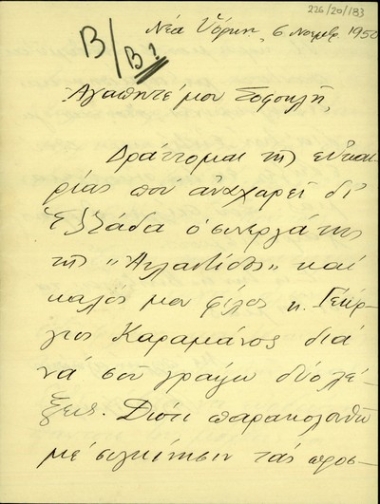 226/20/183
Β/Β1
Νέα Ὑόρκη, 6 Νοεμβ. 1950
Ἀγαπητέ μου Σοφοκλῆ,
Δράττομαι τῆς εὐκαι-
ρίας ποὺ ἀναχωρεῖ δι'
Ἑλλάδα ὁ συνεργάτης
τῆς "Ἀτλαντίδος" καὶ
καλός μου φίλος κ. Γεώρ-
γιος Καραμάνος διὰ
νὰ σοῦ γράψω δύο λέ-
ξεις. Διότι παρακολουθῶ
μὲ συγκίνησιν τὰς προσ-